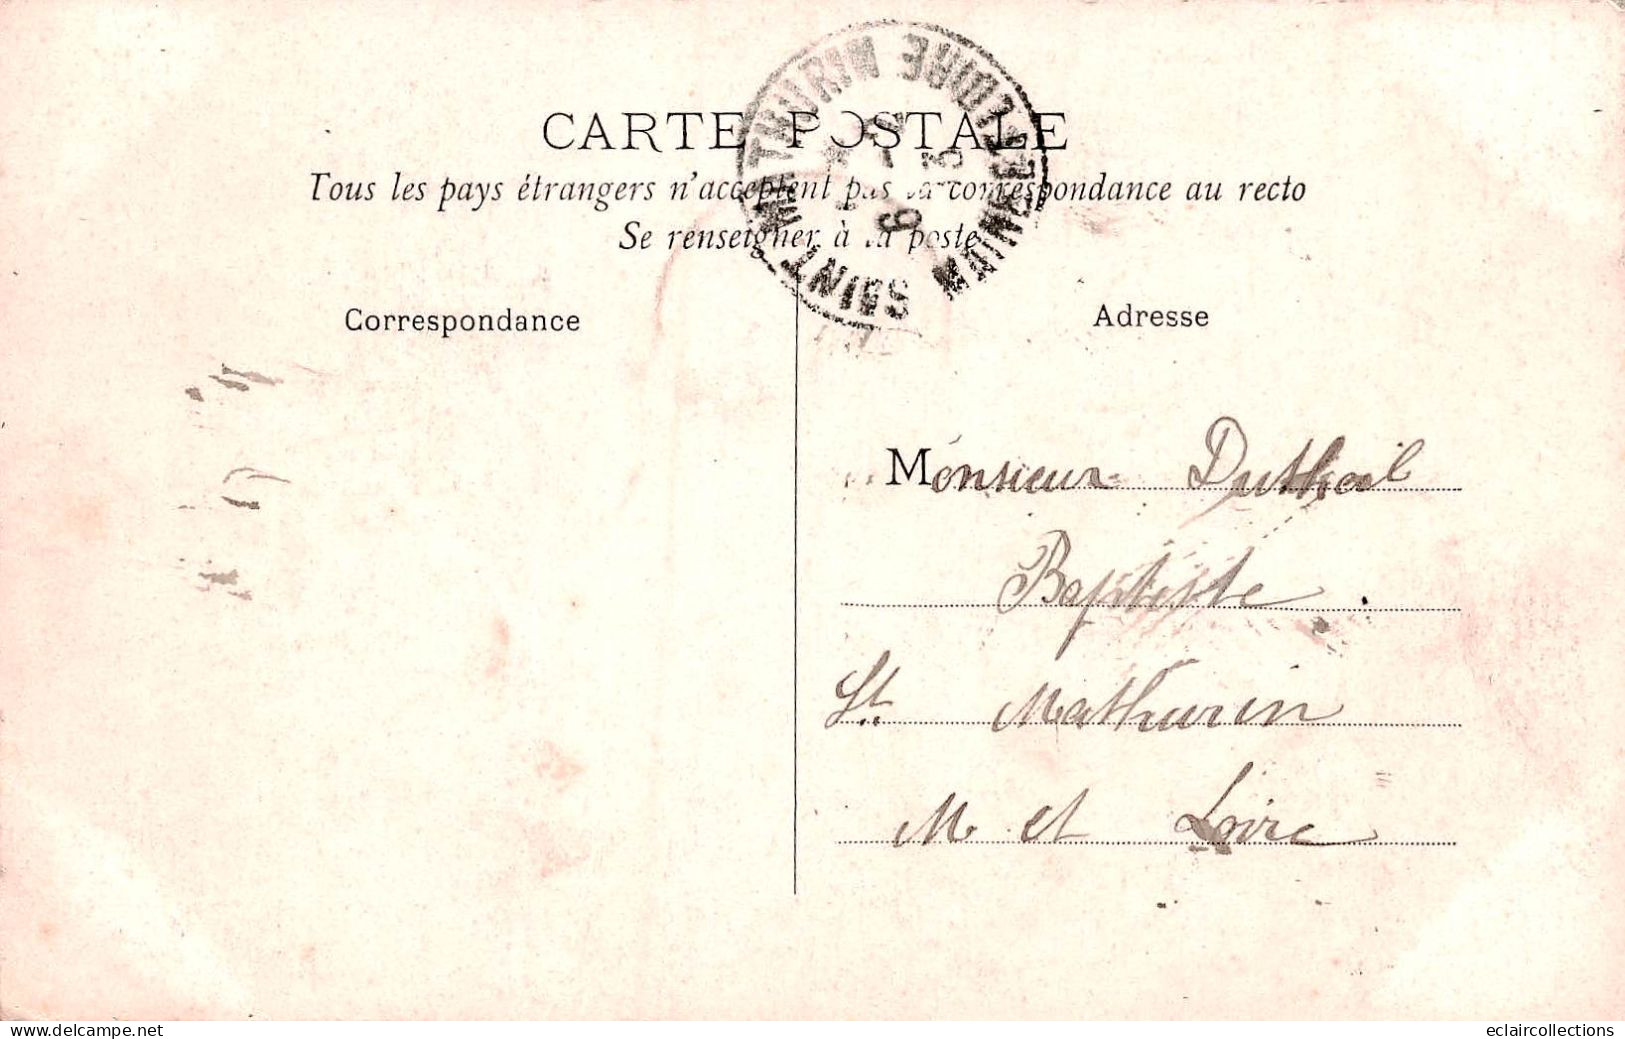 CARTE POSTALE
Tous les pays étrangers n'acceptent pas la correspondance au recto
Se renseigner à la poste
SAINT MATHURIN MAINE-ET-LOIRE
Correspondance
Adresse
Monsieur Dutheil
Baptiste.
St. Mathurin
M et Loire
www.delcampe.net
eclaircollections